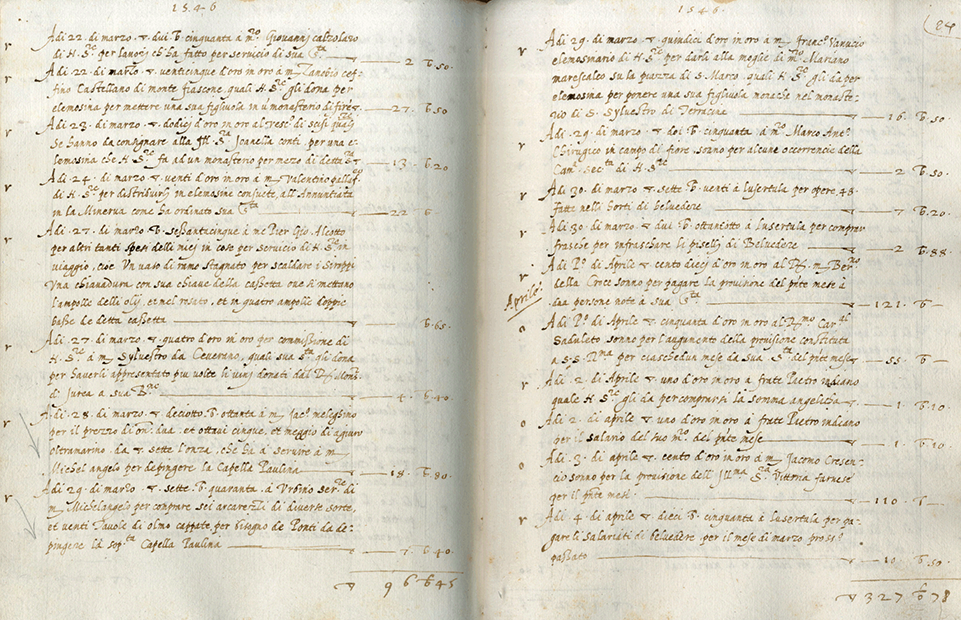 1546
Adi 22. di marzo ▽. dui b. cinquanta à m.ro Giovannj calzolaro
di N. S.re per lavorj ch'ha fatto per servicio di sua S.ta — 2 b. 50.
Adi 22. di marzo ▽. venticinque d'oro in oro à m.
tino Castellano di monte fiascone, quali N. S.re gli dona per
elemosina per mettere una sua figliuola in ũ monasterio di — 27. b. 50
Adi 23. di marzo ▽. dodicj d'oro in oro al vesc.o di scisi quali
se hanno da consignare alla Ill. S.ra Joanella conti per una e-
lemosina che N. S.re fa ad un monasterio per mezo di detta — 13. b. 20
Adi 24. di marzo ▽. venti d'oro in oro à m. Valentino
di N. S.re per distribuirsj in elemosine consuete, all'Annuntiata
in la Minerva come ha ordinato sua S.ta — 22 b
Adi. 27. di marzo b. sessantacinque à mc Pier Gio. Aleotto
per altri tanti spesi delli miej in cose per servicio di N. S. in
viaggio, cioe Un vaso di ramo stagnato per scaldare i siroppi
Una chiavadura con sua chiave della cassetta one si mettano
l'ampolle delli olij, et mel rosato, et in quatro ampolle doppie
basse de detta cassetta — b. 65.
Adi. 27. di marzo ▽. quatro d'oro in oro per commissione di
N. S.re à m. Sylvestro da Cenerano, quali sua S.ta gli dona
per haverli appresentato piu volte li vinj donati dal R. Mons.
di Jurea a sua B.ne — 4. b. 40.
Adi. 28. di marzo ▽. deciotto b. ottanta à m. Jac.o meleghino
per il prezzo di on. dua. et ottavi cinque, et meggio di azuro
oltramarino da ▽. sette l'onza, che ha à servire à m.
Michel angelo per depingere la Capella Paulina — 18. b. 80.
Adi. 29. di marzo. ▽. sette b. quaranta. à Urbino ser.re di
m. Michelangelo per comprare sei di diverse sorte,
et venti Tavole di olmo cappate, per bisogno de Ponti da de-
pingere la sop.ta Capella Paulina — 7. b. 40
▽ 96 b 45
1546.
84
Adi 29. di marzo ▽. quindici d'oro in oro à m. franc.o Vanucio
elemosinario di N. S.re per darli alla moglie di m.ro Mariano
marescalco su la piazza di S. Marco quali N. S.re gli da per
elemosina per ponere una sua figliuola monacha nel monaste-
rio di S. Sylvestro di Terracine — 16. b. 50.
Adi. 29. di marzo. ▽. doi b. cinquanta à m.ro Marco Ant.o
Chirugico in campo di fiore, sonno per alcune occorrencie della
Cam. sec.ta di N. S.re — 2 b. 50.
Adi 30. di marzo ▽. sette b. venti à lusertula per opere 48.
fatte nelli horti di belvedere — 7 b. 20.
Adi 30. di marzo ▽. dui b. ottantotto à lusertula per comprar
frasche per infraschare li piselly di Belvedere — 2 b. 88.
Aprile.
Adi P.o di Aprile ▽. cento diecj d'oro in oro al R. m. Ber.no
della Croce sonno per pagare la provisione del p̃nte mese à
dua persone note à sua S.ta — 121. b —
Adi P.o di Aprile ▽. cinquanta d'oro in oro al R.mo Car.al
Sadoleto sonno per l'augumento della provisione constituta
a S. S. R.ma per ciascedun mese da sua S.ta del p̃nte mese — 55. b —
Adi. 2. di Aprile ▽. uno d'oro in oro a frate Pietro indiano
quale N. S.re gli da per comprarsj la somma angelicha — 1. b. 10.
Adi 2. di aprile ▽. uno d'oro in oro à frate Pietro indiano
per il salario del suo m.ro del p̃nte mese — 1. b. 10.
Adi. 3. di aprile ▽. cento d'oro in oro à m. Jacomo Cresen-
cio sonno per la provisione dell' Ill.ma S.ra Vittoria farnese
per il p̃nte mese. — 110. b —
Adi. 4. di aprile ▽. dieci b. cinquanta à lusertula per pa-
gare li salariati di belvedere per il mese di marzo pross.o
passato — 10 b. 50.
▽ 327 b 78